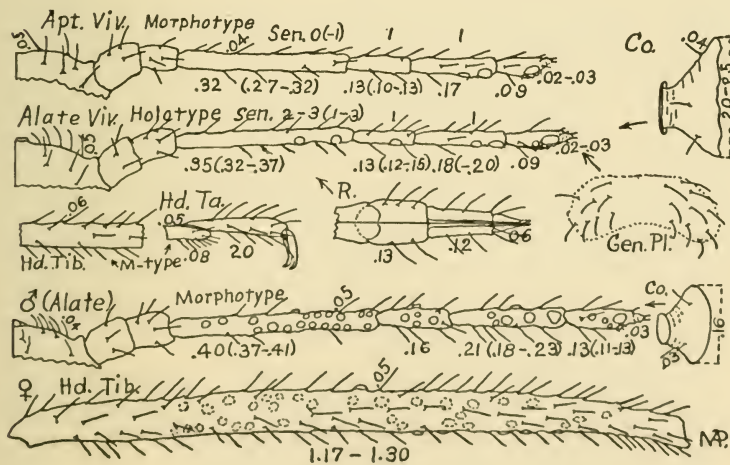 Apt. Viv. Morphotype Sen. 0(-1) 1 1 Co.
.05 .04 .04
.32 (.27-.32) .13(.10-.13) .17 .09 .02-.03
Alate Viv. Holotype Sen. 2-3(1-3) 1 1
.05 .02-.03
.35(.32-.37) .13(.12-.15) .18(-.20) .09
.06 Hd. Ta. R.
.05
Hd. Tib. M-type .08 .20 .13 .12 .06 Gen. Pl.
♂ (Alate) Morphotype .05 Co.
.03 .16
.40(.37-.41) .16 .21(.18-.23) .13(.11-.13) .03
♀ Hd. Tib. .05
1.17 - 1.30